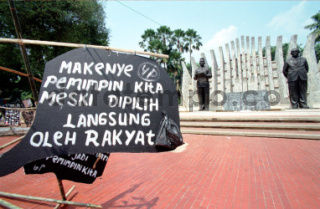 MAKENYE
PEMIMPIN KITA
MESKI DIPILIH
LANGSUNG
OLEH RAKYAT
JADI
PEMIMPIN KITA